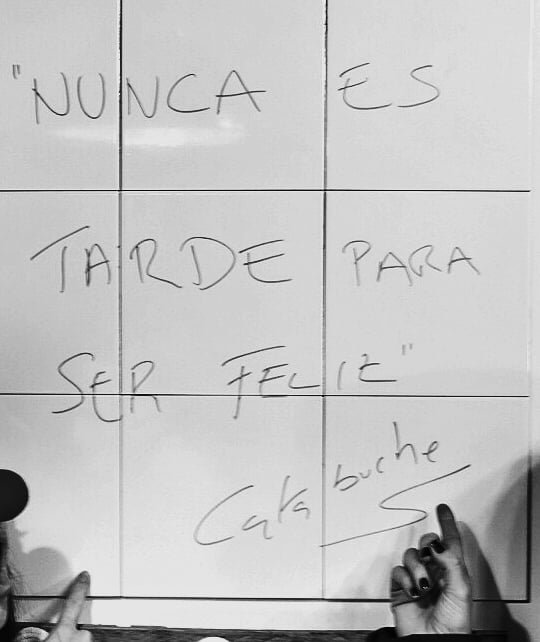 "NUNCA ES
TARDE PARA
SER FELIZ"
Catabuche